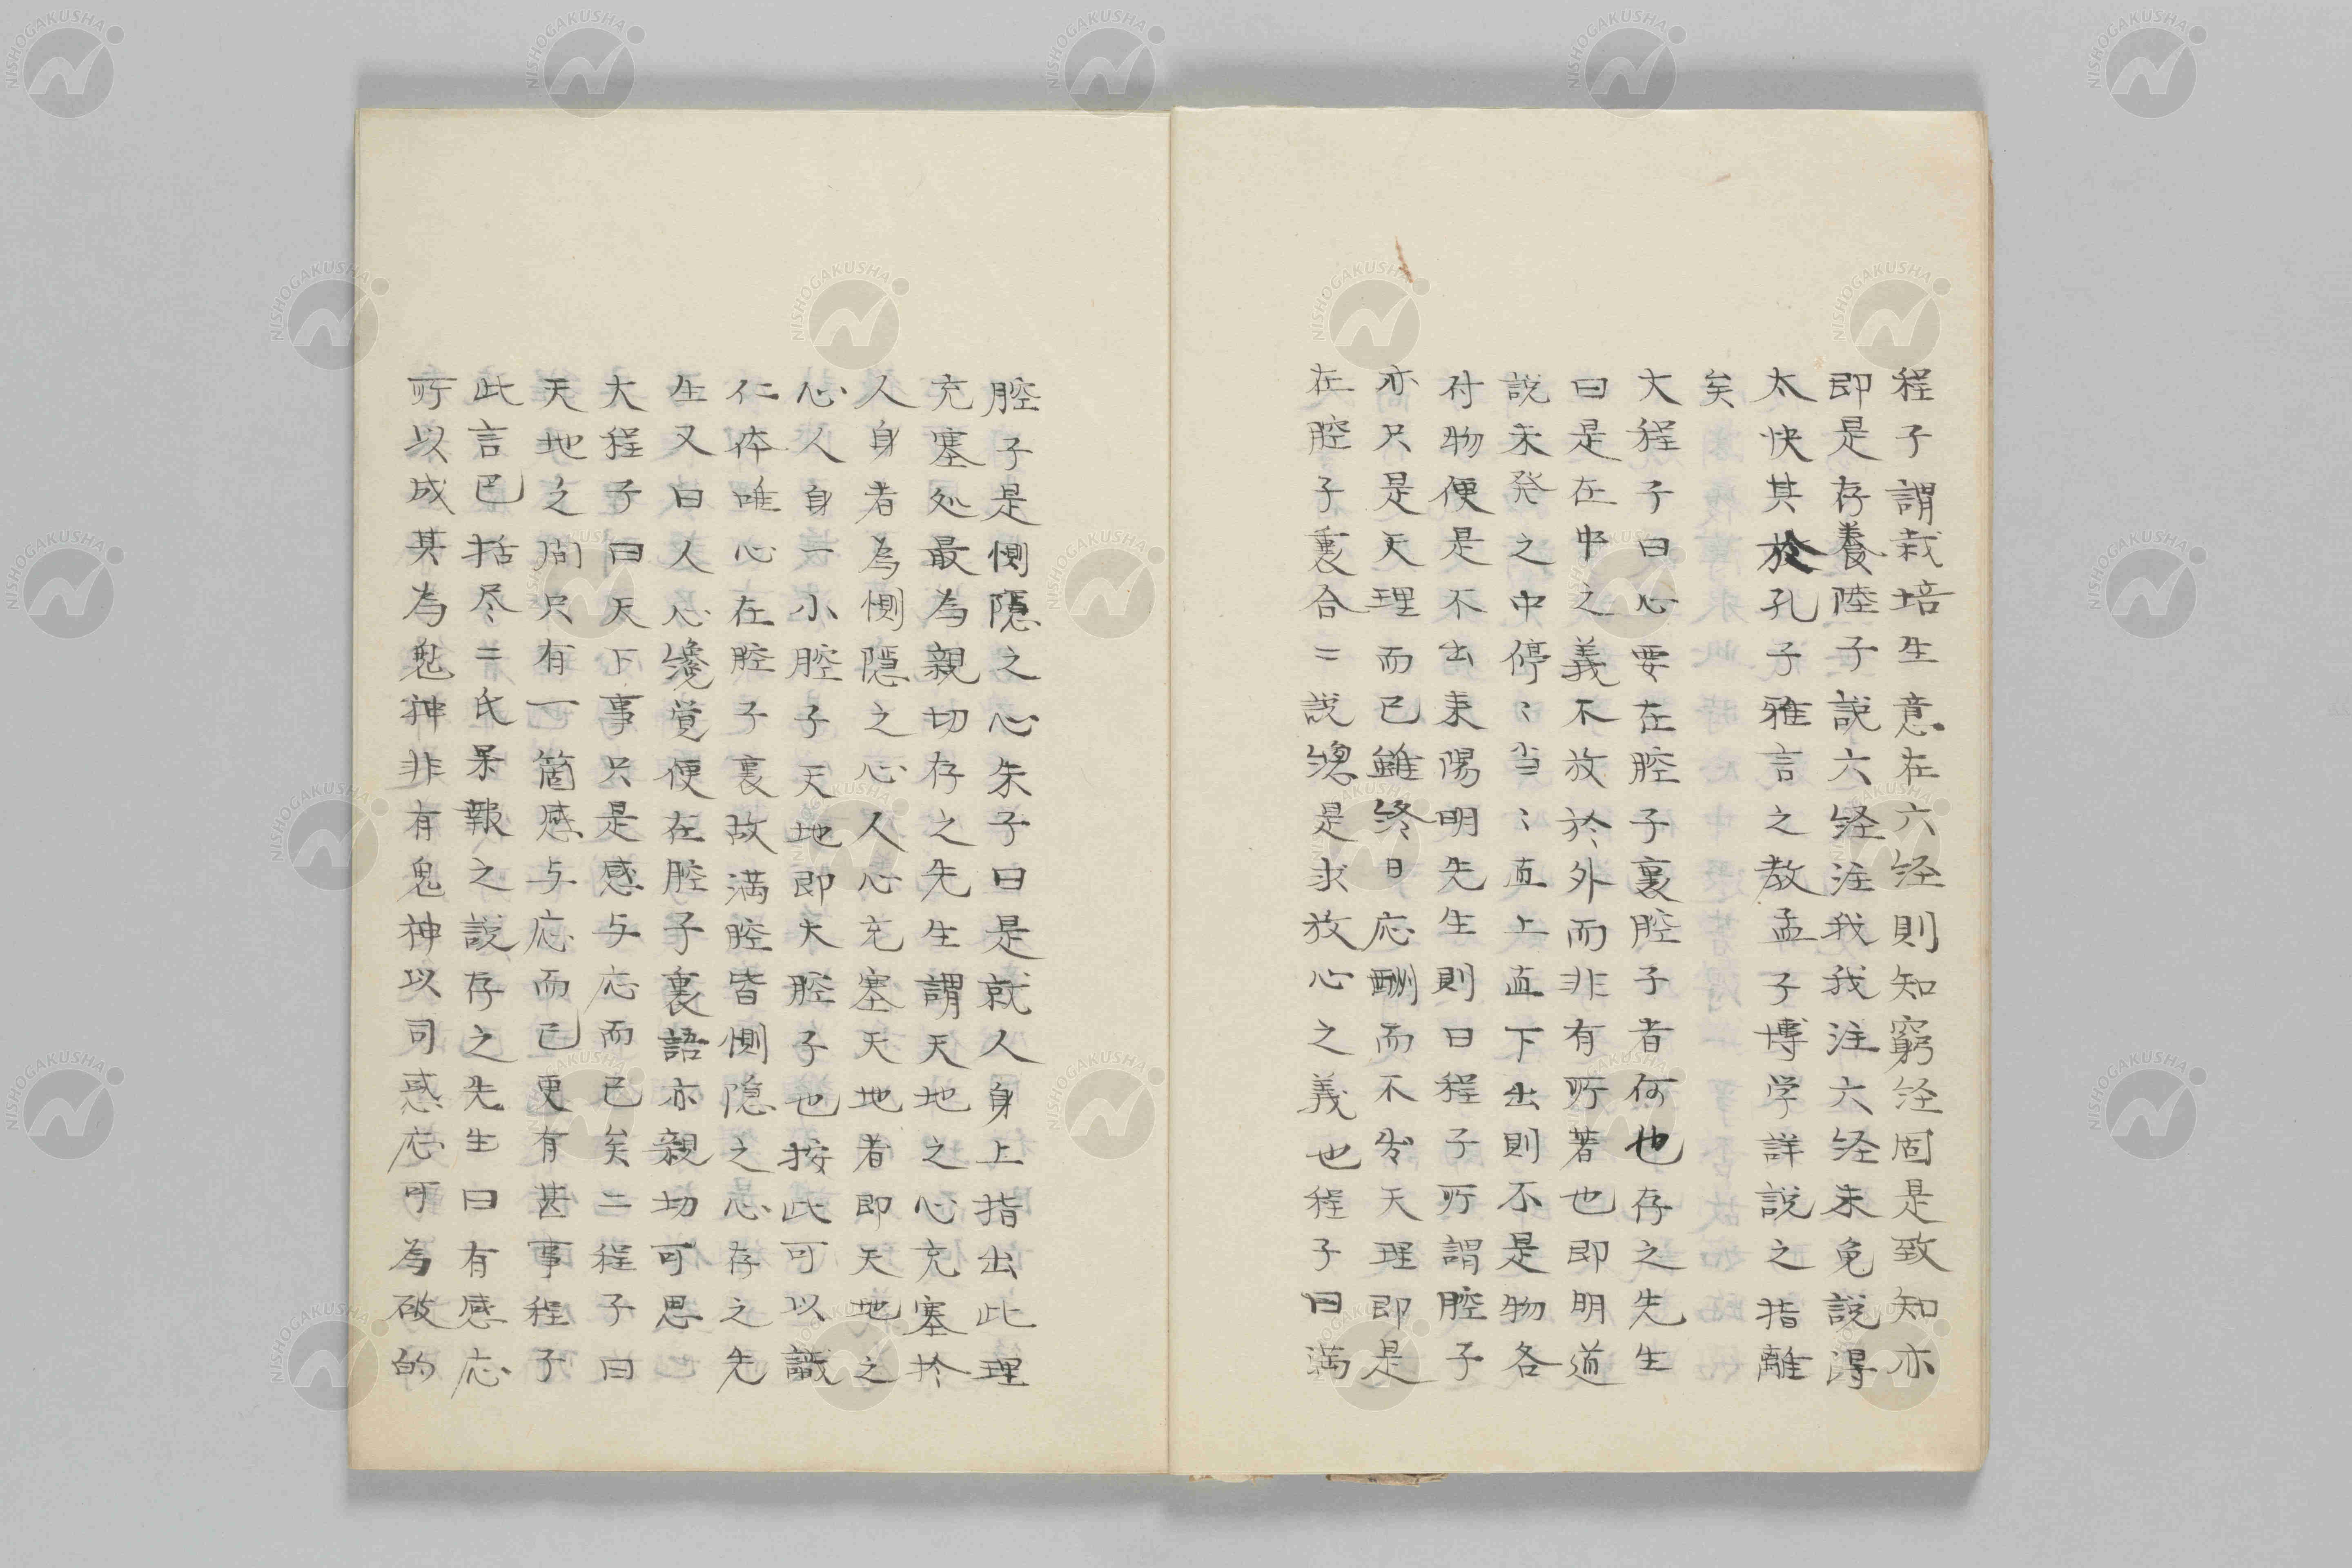 程子謂栽培生意在六经則知窮经固是致知亦
即是存養陸子說六经注我我注六经未免說得
太快其於孔子雅言之教孟子博学詳說之指離
矣
大程子曰心要在腔子裏腔子者何也存之先生
曰是在中之義不放於外而非有所著也即明道
說未発之中停〻当〻直上直下出則不是物各
付物便是不出来陽明先生則曰程子所謂腔子
亦只是天理而已雖終日応酬而不出天理即是
在腔子裏合二說緫是求放心之義也程子曰満
腔子是惻隠之心朱子曰是就人身上指出此理
充塞処最為親切存之先生謂天地之心充塞於
人身者為惻隠之心人心充塞天地者即天地之
心人身一小腔子天地即大腔子也按此可以識
仁体唯心在腔子裏故満腔皆惻隠之心存之先
生又曰人心纔覚便在腔子裏語亦親切可思
大程子曰天下事只是感与応而已矣二程子曰
天地之間只有一箇感与応而已更有甚事程子
此言已括尽二氏果報之說存之先生曰有感応
所以成其為鬼神非有鬼神以司感応可為破的